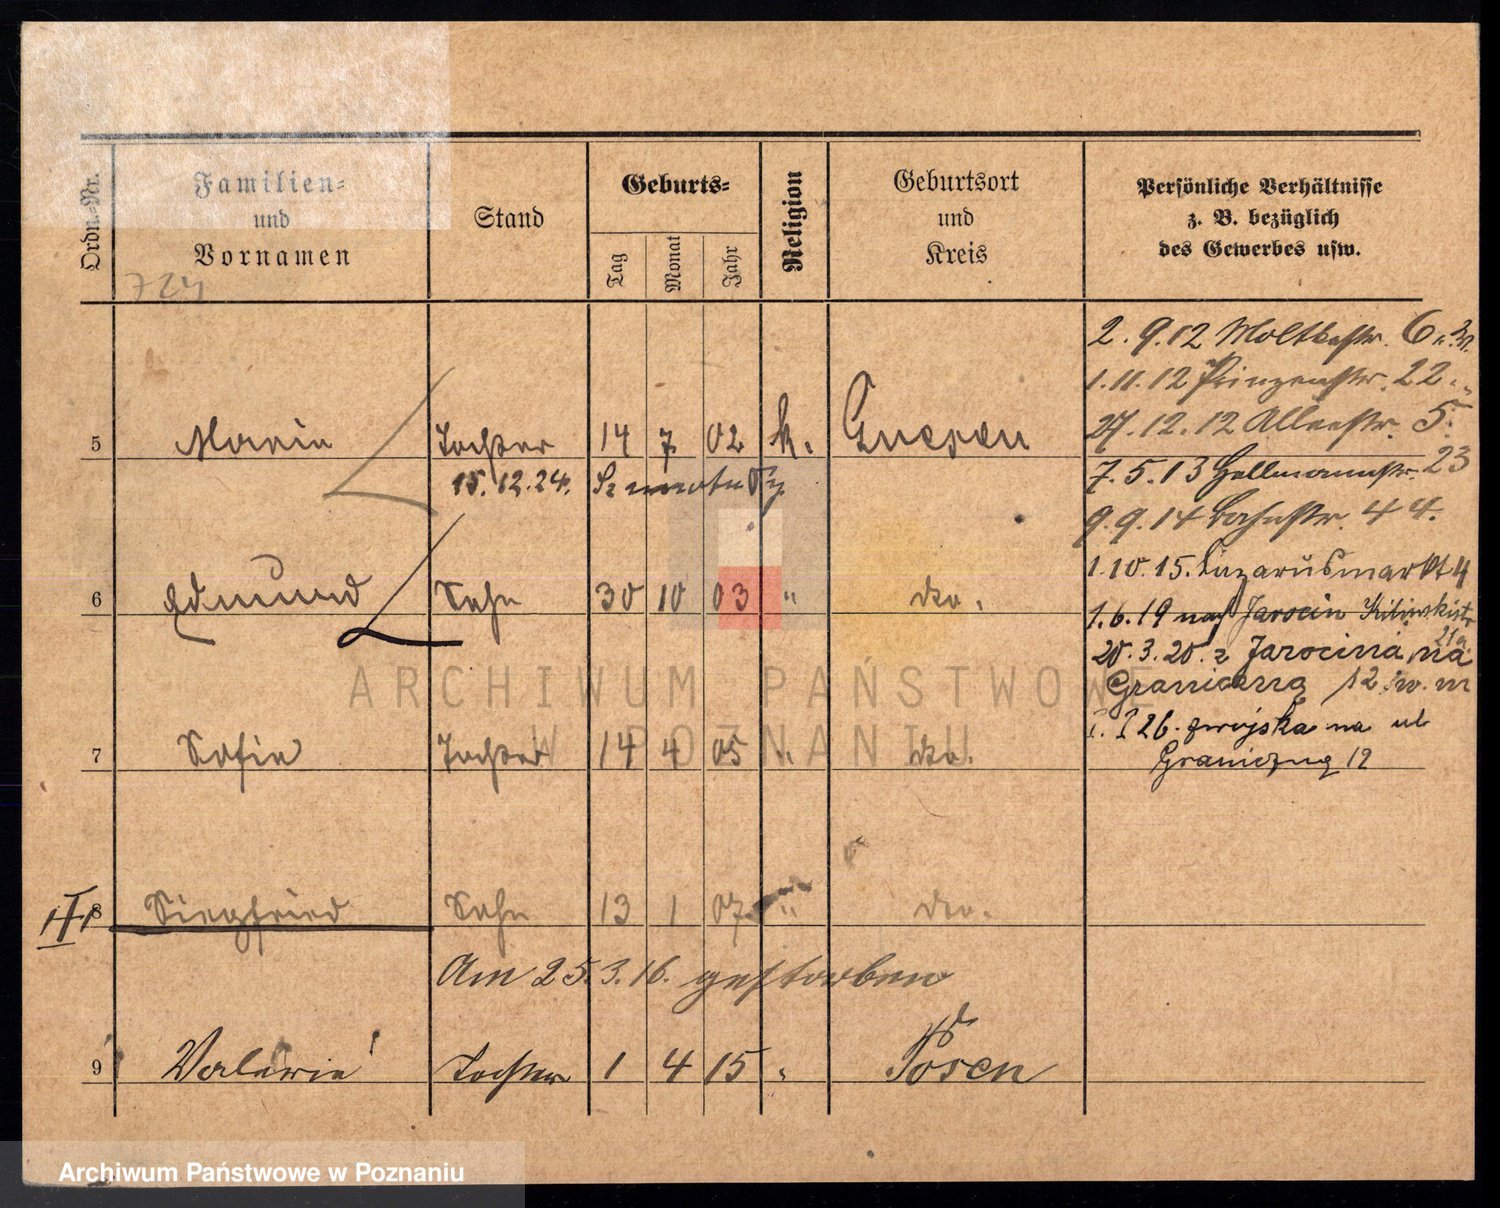 Ordn.-Nr.
Familien-
und
Vornamen
Stand
Geburts-
Tag
Monat
Jahr
Religion
Geburtsort
und
Kreis
Persönliche Verhältnisse
z. B. bezüglich
des Gewerbes usw.
724
2. 9. 12 Moltkestr. 6
1. 11. 12 Prinzenstr. 22 "
27. 12. 12 Alleestr. 5.
5 Maria Tochter 14 7 02 k. Gnesen
7. 5. 13 Hellmannstr. 23
15. 12. 24. Szamotuły
9. 9. 14 Bahnstr. 44.
1. 10. 15. Lazarusmarkt 4
6 Edmund Sohn 30 10 03 " do.
1. 6. 19 nach Jarocin
21a
20. 3. 20. z Jarocina na
Graniczną 12 w. m
1. 1 26. z wojska na ul
Graniczną 12
7 Sofie Tochter 14 4 05 " do.
8 Siegfried Sohn 13 1 07 " do.
Am 25. 3. 16. gestorben
9 Valeria Tochter 1 4 15 " Posen
ARCHIWUM PAŃSTWOWE
W POZNANIU
Archiwum Państwowe w Poznaniu